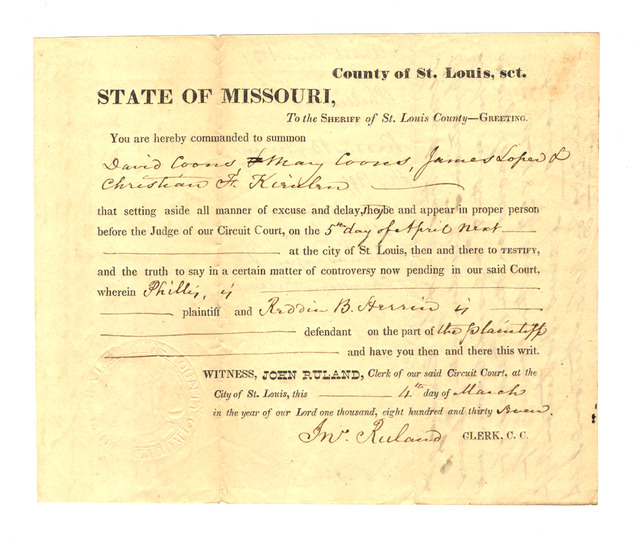 County of St. Louis, sct.
STATE OF MISSOURI,
To the SHERIFF of St. Louis County—GREETING.
You are hereby commanded to summon
David Coons & Mary Coons, James Loper &
Christian F.
that setting aside all manner of excuse and delay, they be and appear in proper person
before the Judge of our Circuit Court, on the 5th day of April Next
at the city of St. Louis, then and there to TESTIFY,
and the truth to say in a certain matter of controversy now pending in our said Court,
wherein Phillis, is
plaintiff and Reddin B. Herrin is
defendant on the part of the plaintiff
and have you then and there this writ.
WITNESS, JOHN RULAND, Clerk of our said Circuit Court, at the
City of St. Louis, this 4th day of March
in the year of our Lord one thousand, eight hundred and thirty seven.
Jno. Ruland CLERK, C. C.